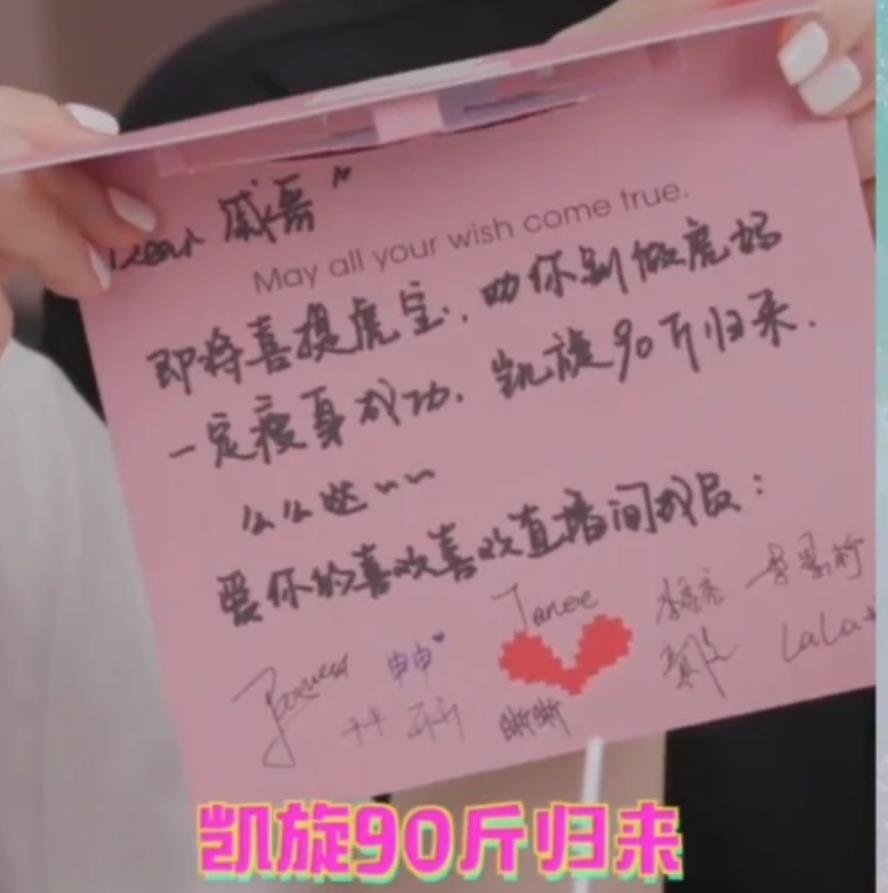 Dear 戚哥"
May all your wish come true.
即将喜提虎宝,叻你别做虎妈
一定瘦身成功,凯旋90斤归来.
么么哒~~
爱你的喜欢喜欢直播间成员:
Janee
李亮亮
申申
LaLa
晰晰
凯旋90斤归来